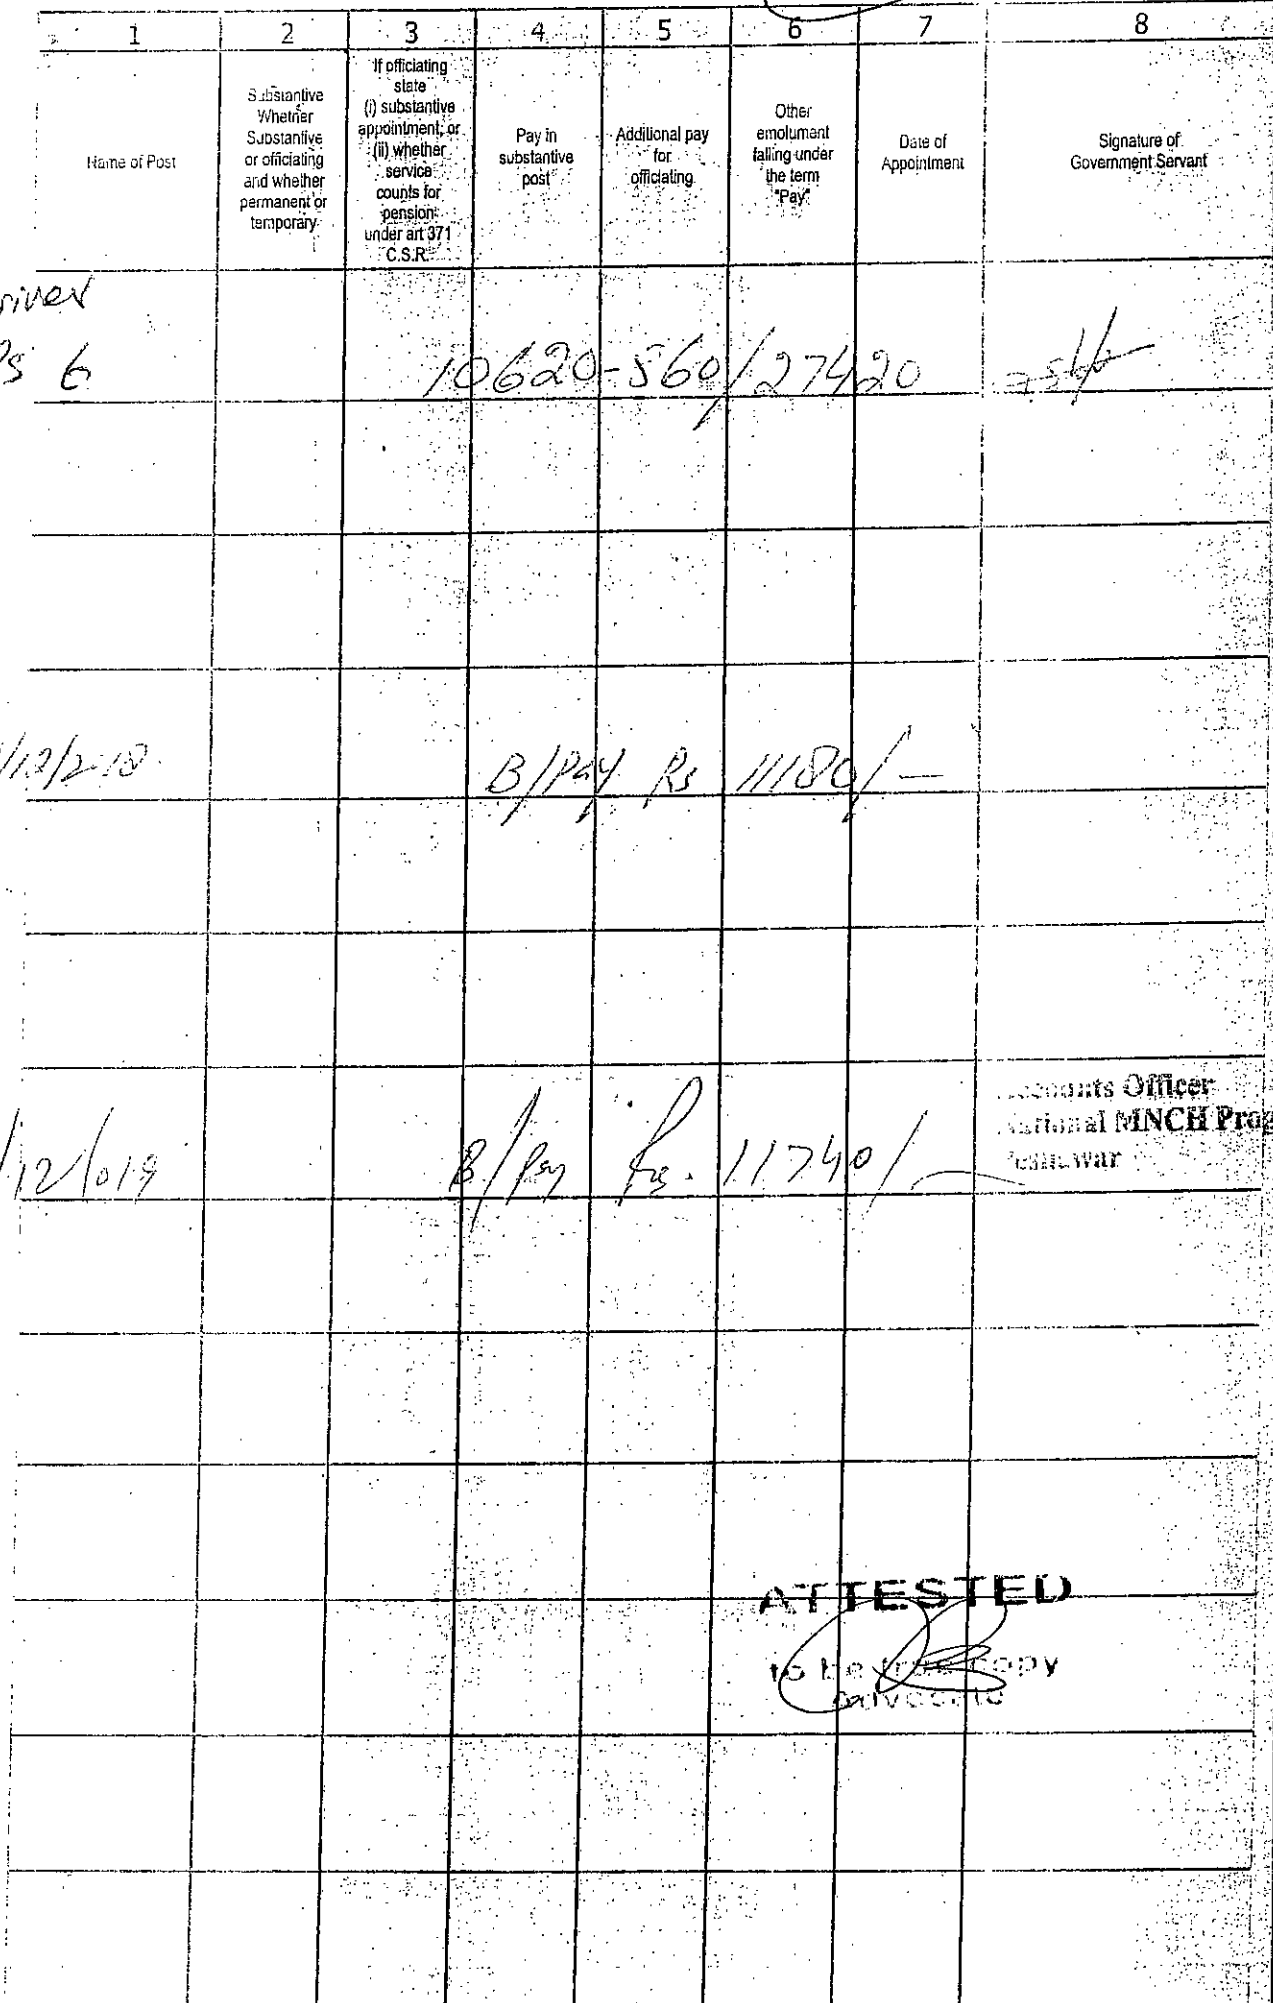 1 2 3 4 5 6 7 8
Name of Post
Substantive
Whether
Substantive
or officiating
and whether
permanent or
temporary
If officiating
state
(i) substantive
appointment, or
(ii) whether
service
counts for
pension
under art 371
C.S.R.
Pay in
substantive
post
Additional pay
for
officiating
Other
emolumant
falling under
the term
"Pay"
Date of
Appointment
Signature of
Government Servant
river
Ps 6 10620-560/27420
/12/2018 B/Pay Rs 11180/-
/12/019 B/Pay Rs. 11740/-
Accounts Officer
National MNCH Prog
Peshawar
ATTESTED
to be true copy
advocate